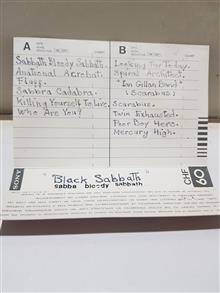 A
Sabbath Bloody Sabbath.
Anational Acrobat.
Fluff.
Sabbra Cadabra.
Killing Yourself To Live.
Who Are You?
B
Looking For Today.
Spiral Architect.
"Ian Gillan Band"
(Scarabus)
Scarabus.
Twin Exhausted.
Poor Boy Hero.
Mercury High.
SONY
"Black Sabbath"
sabba bloody sabbath
CHF
60